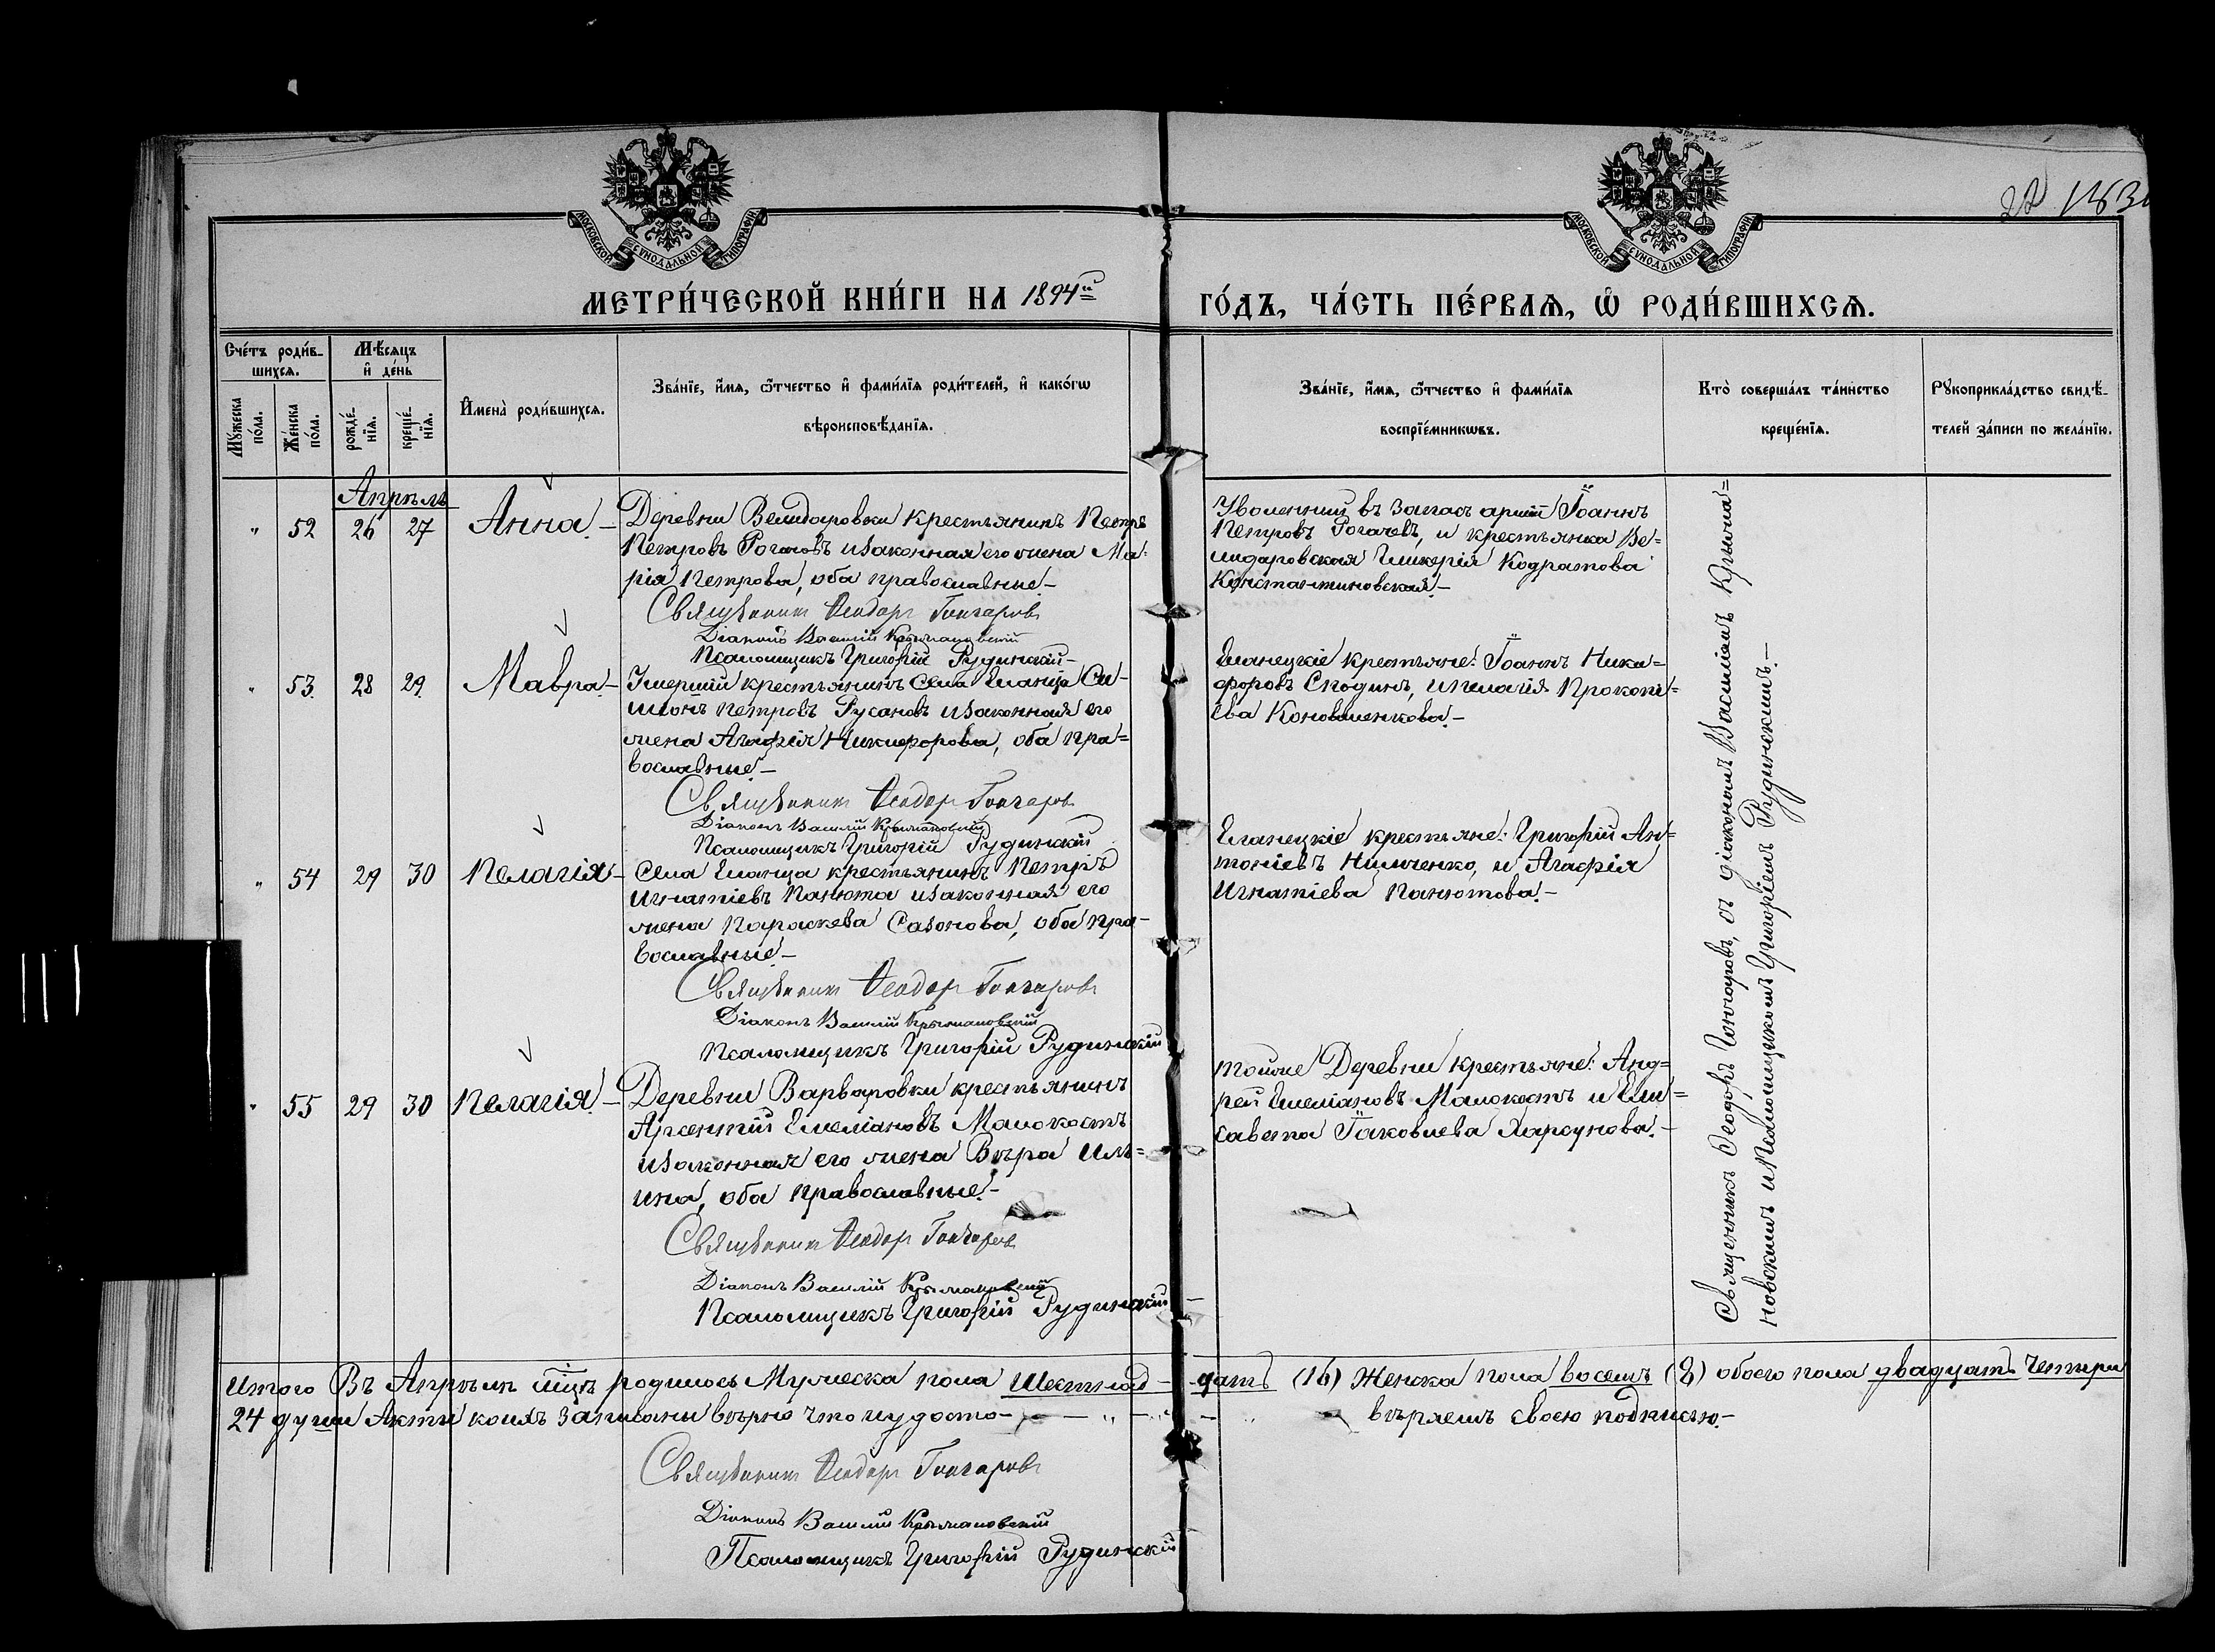 22 1163
МОСКОВСКОЙ СѴНОДАЛЬНОЙ ТИПОГРАФІИ
МОСКОВСКОЙ СѴНОДАЛЬНОЙ ТИПОГРАФІИ
МЕТРИ́ЧЕСКОЙ КНИ́ГИ НА 1894й ГО́ДЪ, ЧА́СТЬ ПЕ́РВАѦ, Ѽ РОДИ́ВШИХСѦ.
Сче́тъ роди́вшихсѧ.
Мѣ́сѧцъ и҆ де́нь
Мꙋ́жеска по́ла.
Же́нска по́ла.
рожде́нїѧ.
креще́нїѧ.
И҆мена̀ роди́вшихсѧ.
Зва́нїе, и҆́мѧ, ѻ҆́тчество и҆ фами́лїѧ роди́телей, и҆ како́гѡ
вѣроисповѣ́данїѧ.
Зва́нїе, и҆́мѧ, ѻ҆́тчество и҆ фами́лїѧ
воспрїе́мникѡвъ.
Кто̀ соверша́лъ та́инство
креще́нїѧ.
Рꙋкоприкла́дство свидѣ́телей за́писи по жела́нїю.
Апрѣль
" 52 26 27 Анна.-
Деревни Велидаровки крестьянинъ Петръ
Петровъ Рогачовъ и законная его жена Ма=
рія Петрова, оба православные.-
Священник Ѳеодор Гончаров
Діаконъ Василій Крыжановскій
Псаломщикъ Григорій Рудинскій-
Уволенный въ запасъ арміи Іоаннъ
Петровъ Рогачевъ, и крестьянка Ве=
лидаровская Гликерія Кодратова
Константиновская.-
" 53. 28 29. Мавра.-
Умершій крестьянинъ села Еланца Си=
меонъ Петровъ Русановъ и законная его
жена Агафія Никифорова, оба пра=
вославные.-
Священник Ѳеодор Гончаров
Діаконъ Василій Крыжановскій
Псаломщикъ Григорій Рудинскій
Еланецкіе крестьяне: Іоаннъ Ники=
форовъ Сподинъ, и Пелагія Прокопі=
ева Коноваленкова.-
" 54 29 30 Пелагія-
Села Еланца крестьянинъ Петръ
Игнатіевъ Панюта и законная его
жена Параскева Сазонова, оба пра-
вославные.-
Священник Ѳеодор Гончаров
Діаконъ Василій Крыжановскій
Псаломщикъ Григорій Рудинскій
Еланецкіе крестьяне: Григорій Ан=
тоніевъ Нильченко, и Агафія
Игнатіева Панютова.-
" 55 29 30 Пелагія.-
Деревни Варваровки крестьянинъ
Арсентій Емеліановъ Малокостъ
и законная его жена Вѣра Иль=
ина, оба православные.-
Священник Ѳеодор Гончаров
Діаконъ Василій Крыжановскій
Псаломщикъ Григорій Рудинскій-
тойже Деревни крестьяне: Анд=
рей Емеліановъ Малокостъ и Ели=
савета Іаковлева Ларсунова.-
Священникъ Ѳеодоръ Гончаровъ, съ діакономъ Василіемъ Крыжа=
новскимъ и Псаломщикомъ Григоріемъ Рудинскимъ.-
Итого Въ Апрѣлѣ мцѣ родилось Мужеска пола Шестнад-цать (16) Женска пола восемъ (8) обоего пола двадцать четыри
24 души Акты коихъ записаны вѣрно что и удосто- вѣряемъ своею подписью.-
Священник Ѳеодор Гончаров
Діаконъ Василій Крыжановскій
Псаломщикъ Григорій Рудинскій